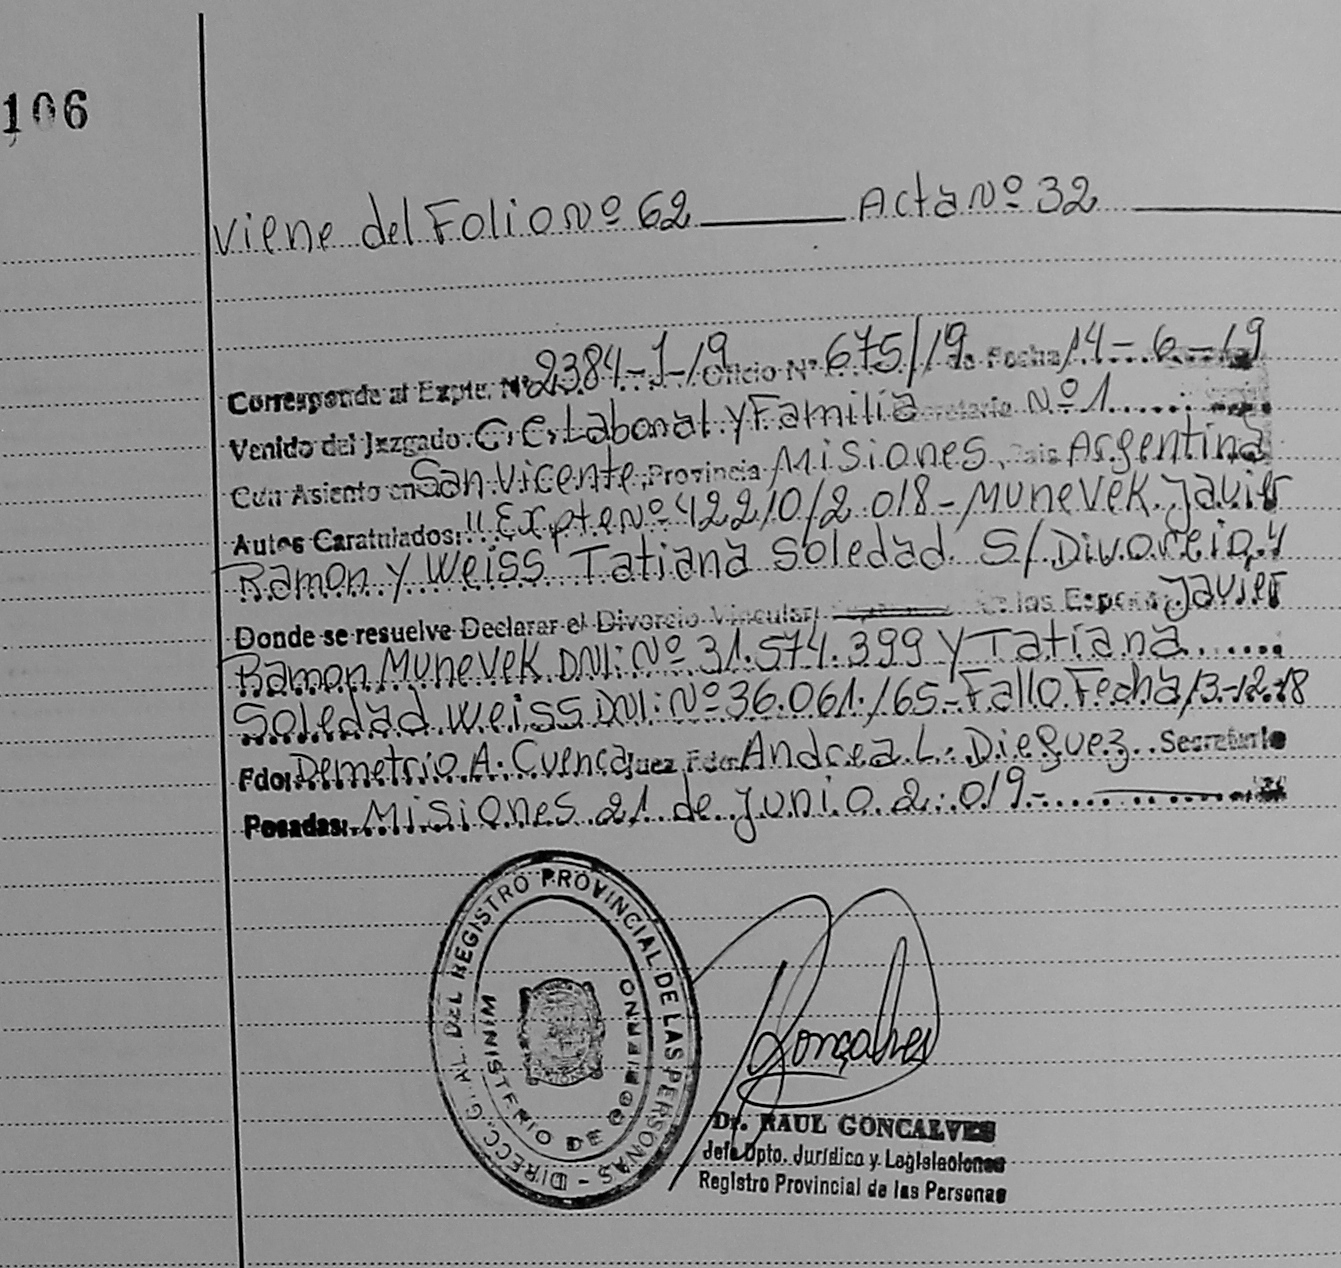 106
Viene del Folio Nº 62 Acta Nº 32
Corresponde al Expte. Nº 2384-1-19 Oficio Nº 675/19 de Fecha 14-6-19
Venido del Juzgado. C.C. Laboral y Familia Secretaría Nº 1
Con Asiento en San Vicente, Provincia Misiones, País Argentina
Autos Caratulados: "Expte Nº 42210/2.018-Munevek Javier
Ramon y Weiss Tatiana Soledad S/ Divorcio, y
Donde se resuelve Declarar el Divorcio Vincular, de los Esposos Javier
Ramon Munevek DNI: Nº 31.574.399 y Tatiana
Soledad Weiss DNI: Nº 36.061.165-Fallo Fecha 13-12-18
Fdo: Demetrio A. Cuenca Juez, Fdo: Andrea L. Dieguez. Secretario
Posadas: Misiones 21 de Junio 2.019-
DIRECC. G. AL. DEL REGISTRO PROVINCIAL DE LAS PERSONAS -
MINISTERIO DE GOBIERNO
Gonçalves
Dr. RAUL GONCALVES
Jefe Dpto. Jurídico y Legislaciones
Registro Provincial de las Personas